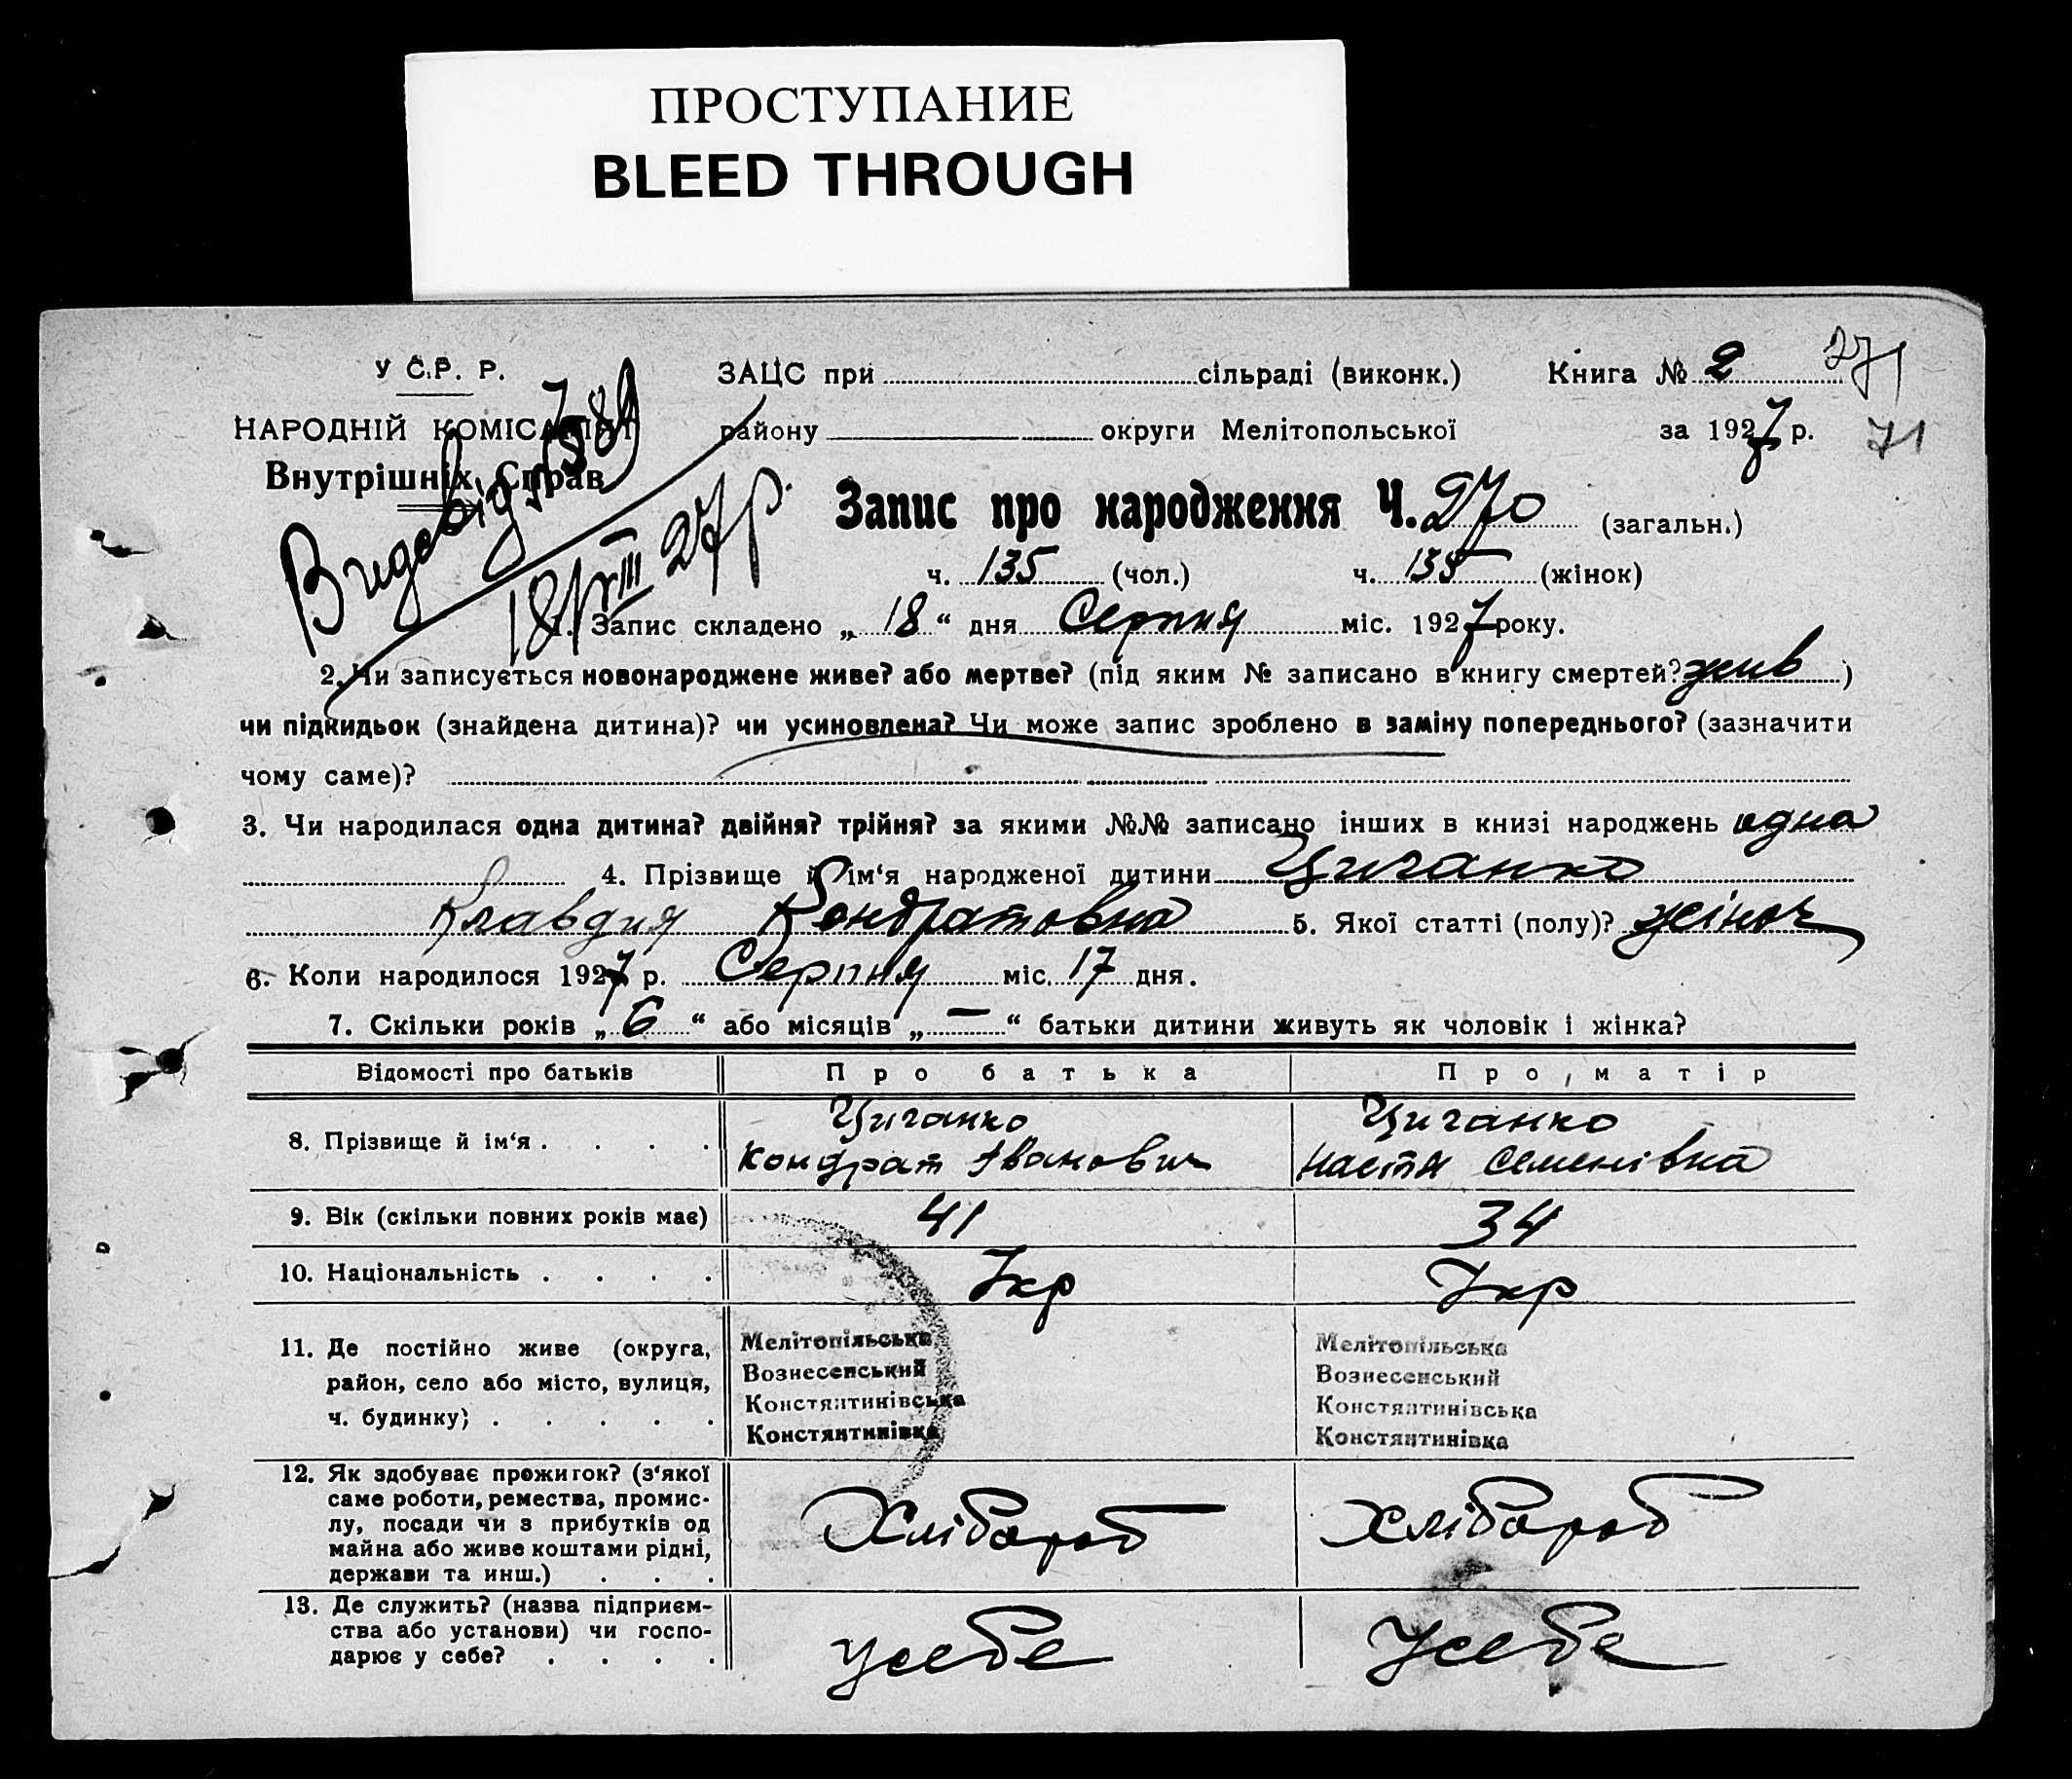 ПРОСТУПАНИЕ
BLEED THROUGH
У С.Р. Р.
ЗАЦС при сільраді (виконк.) Книга № 2 271
НАРОДНІЙ КОМІСАРІЯТ району округи Мелітопольської за 1927 р. 71
Внутрішніх Справ
Видовід 7589
18/VIII 27 р.
Запис про народження Ч. 270 (загальн.)
ч. 135 (чол.) ч. 135 (жінок)
1. Запис складено „ 18 “ дня Серпня міс. 1927 року.
2. Чи записується новонароджене живе? або мертве? (під яким № записано в книгу смертей? жив )
чи підкидьок (знайдена дитина)? чи усиновлена? Чи може запис зроблено в заміну попереднього? (зазначити
чому саме)?
3. Чи народилася одна дитина? двійня? трійня? за якими №№ записано інших в книзі народжень одна
4. Прізвище й ім‘я народженої дитини Циганко
Клавдия Кондратовна 5. Якої статті (полу)? жіноч
6. Коли народилося 1927 р. Серпня міс. 17 дня.
7. Скільки років „ 6 “ або місяців „ — “ батьки дитини живуть як чоловік і жінка?
Відомості про батьків Про батька Про матір
8. Прізвище й ім‘я . . . . Циганко Циганко
Кондрат Іванович Настя Семенівна
9. Вік (скільки повних років має) 41 34
10. Національність . . . . Укр Укр
11. Де постійно живе (округа, Мелітопільська Мелітопільська
район, село або місто, вулиця, Вознесенський Вознесенський
ч. будинку; . . . . . Констянтинівська Констянтинівська
Констянтинівка Констянтинівка
12. Як здобуває прожиток? (з‘якої
саме роботи, ремества, промис-
лу, посади чи з прибутків од Хлібороб Хлібороб
майна або живе коштами рідні,
держави та инш.) . . .
13. Де служить? (назва підприєм-
ства або установи) чи госпо- усебе усебе
дарює у себе? . . . .